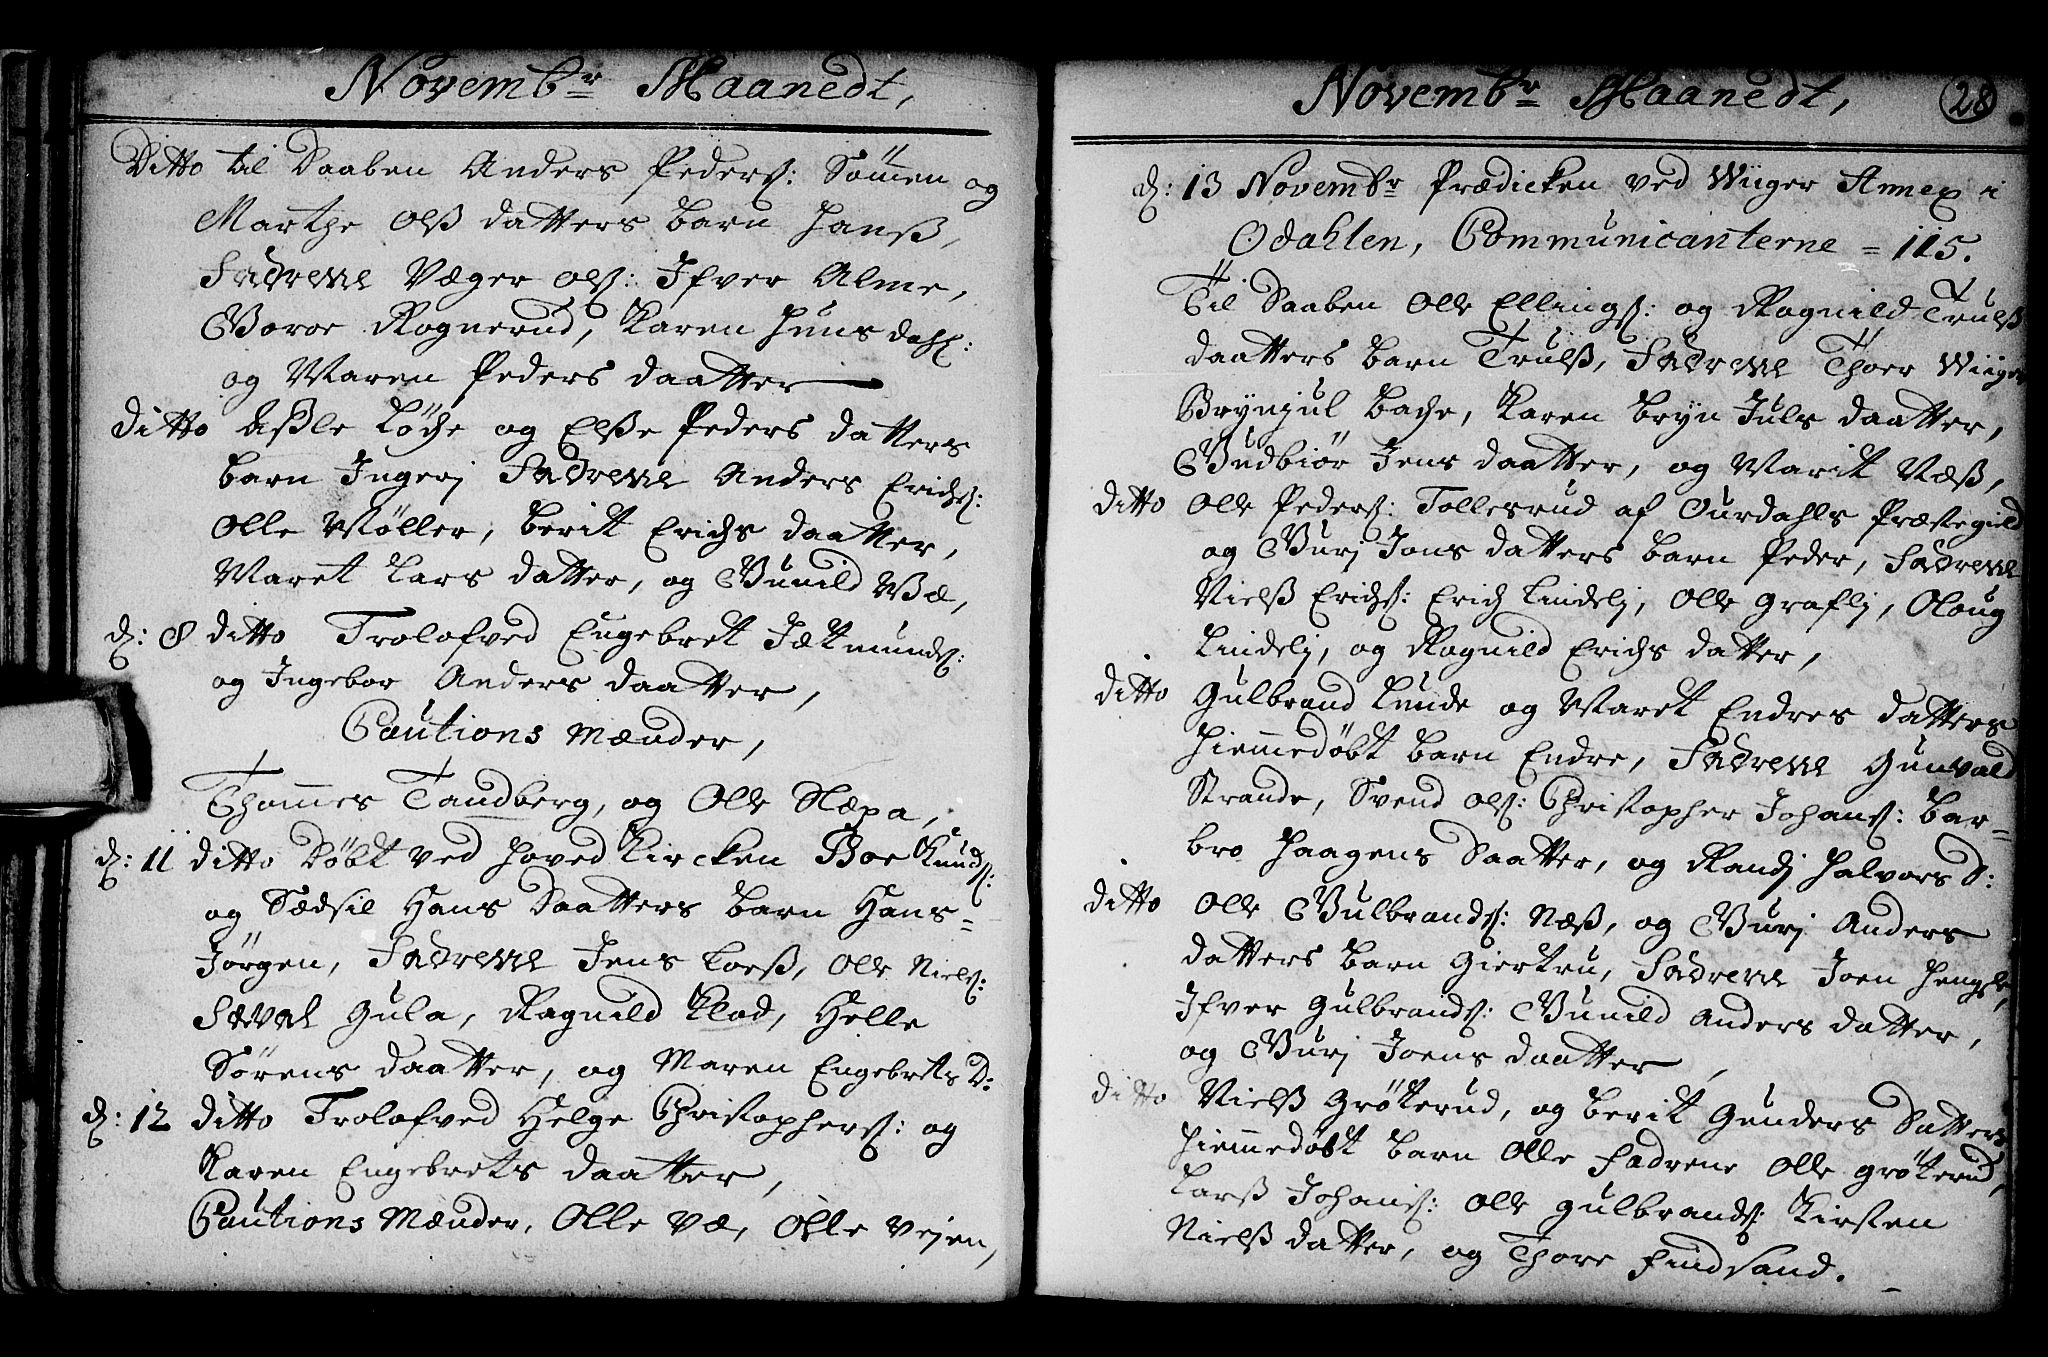 Novembr Maanedt,
Ditto til Daaben Anders Peders: Sømen og
Marthe Olß datters barn Hanß,
Fadrene Væger Ols: Ifver Alme,
Goroe Rognerud, Karen Huns dahl:
og Maren Peders daatter
ditto Aßle Løche og Elße Peders datters
barn Ingerj Fadrene Anders Erichs:
Olle Møller, Berit Erichs daatter,
Maret Lars datter, og Gunild Væ,
d: 8 ditto Trolofved Engebret Jætmunds:
og Ingebor Anders daatter,
Cautions Mænder,
Thommes Tandberg, og Olle Næpa,
d: 11 ditto Døbt ved Hoved Kircken Boe Knuds:
og Sædsil Hans Daatters barn Hans-
Jørgen, Fadrene Jens Loeß, Olle Niels:
Sæval Gula, Ragnild Klod, Helle
Sørens daatter, og Maren Engebrets D:
d: 12 ditto Trolofved Helge Christophers: og
Karen Engebrets daatter,
Cautions Mænder, Olle Væ, Olle Vejen,
Novembr Maanedt,
28
d: 13 Novembr Prædicken ved Wiiger Annex i
Odahlen, Communicanterne = 115.
Til Daaben Olle Ellings: og Ragnild Trulß
daatters barn Trulß, Fadrene Thoer Wiiger
Brynjul Bache, Karen Bryn Juls daatter,
Gudbiør Jens daatter, og Marit Næß,
ditto Olle Peders: Tollesrud af Ourdahls Præstegield
og Gurj Jons datters barn Peder, Fadrene
Nielß Erichs: Erich Lindelj, Olle Graflj, Oloug
Lindelj, og Ragnild Erichs datter,
ditto Gulbrand Lunde og Maret Endres datters
hiemmedøbt barn Endre, Fadrene Gunvald
Strande, Svend Ols: Christopher Johans: Bar-
bro Haagens Daatter, og Randj Halvors D:
ditto Olle Gulbrands: Næß, og Gurj Anders
datters barn Giertru, Fadrene Joen Hengsle,
Ifver Gulbrands: Gunild Anders datter,
og Gurj Joens daatter,
ditto Nielß Grøterud, og Berit Gunders Datters
hiemmedøbt barn Olle Fadrene Olle Grøterud,
Larß Johans: Olle Gulbrands: Kirsten
Nielß datter, og Thore Findsand.